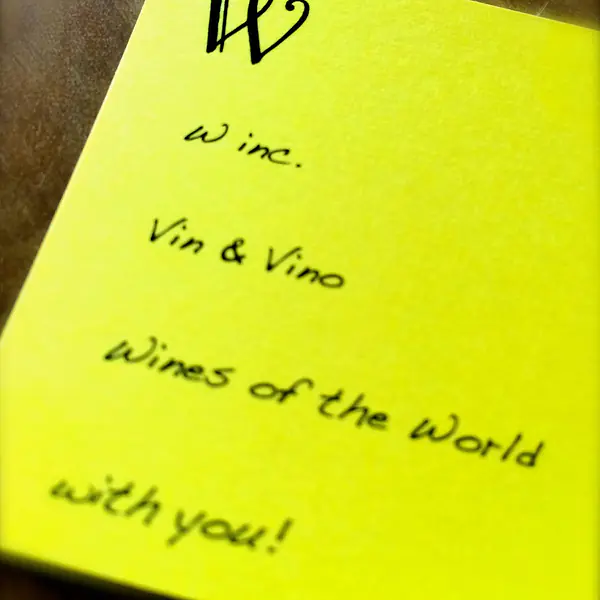 W
W inc.
Vin & Vino
Wines of the World
with you!